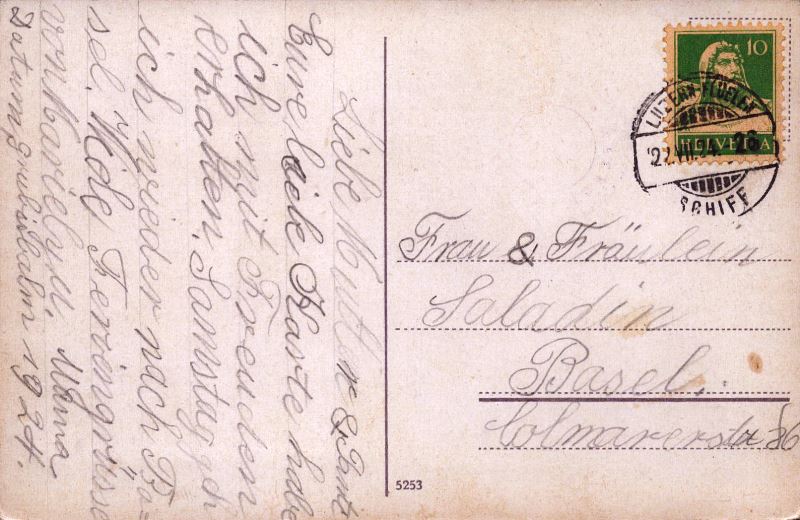 Liebe Mutter & Tante
Eure liebe Karte habe
ich mit Freuden
erhalten. Samstag geh
ich wieder nach Ba-
sel. Viele Feriengrüsse
von Marie u. Mama
Datum 1924.
10
HELVETIA
LUZERN-FLÜELEN
22.VII.24
SCHIFF
Frau & Fräulein
Saladin
Basel.
Colmarerstr 86
5253